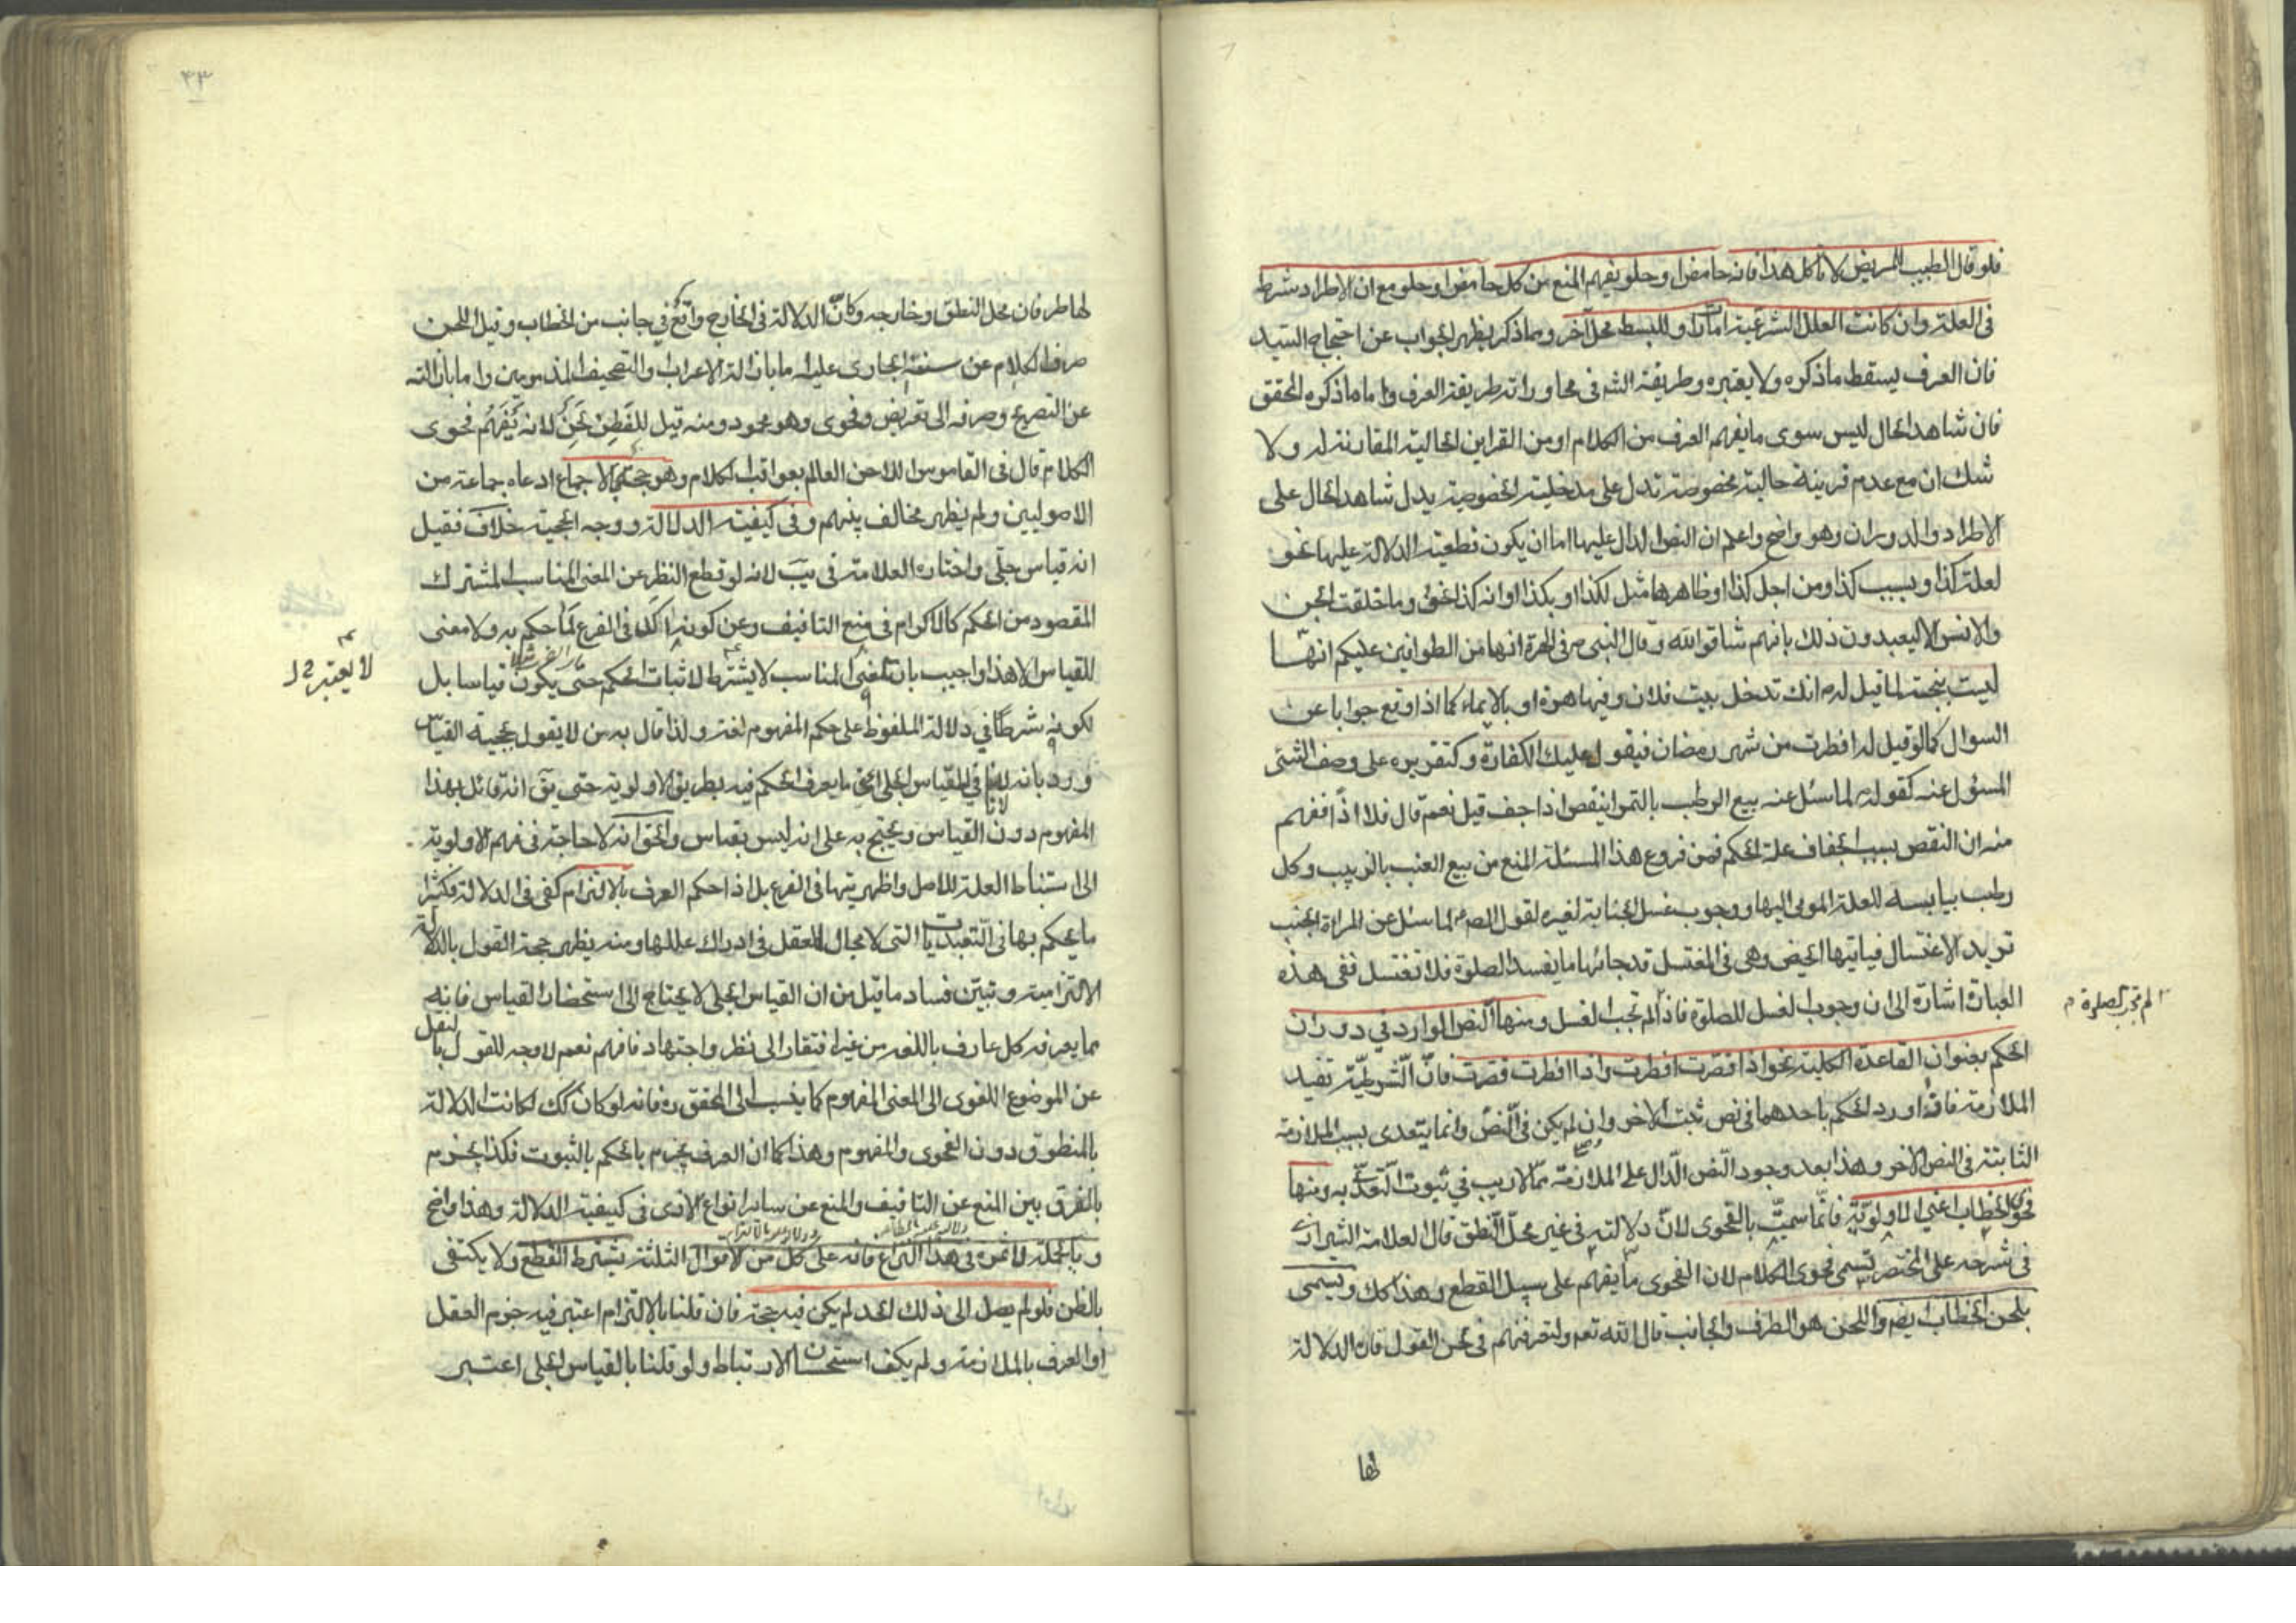 فلو قال الطبيب للمريض لا تاكل هذا فانه حامض او حلو يفهم المنع من كل حامض او حلو مع ان الاطراد شرط
فى العلة وان كانت العلل الشرعية امارات وللبسط محل آخر ومما ذكر يظهر الجواب عن احتجاج السيد
فان العرف يسقط ما ذكره ولا يعتبره وطريقة الشرع فى محاوراته طريقة العرف واما ما ذكره المحقق
فان شاهد الحال ليس سوى ما يفهم العرف من الكلام او من القراين الحالية المقارنة له ولا
شك ان مع عدم قرينة حالية مخصوصة تدل على مدخلية الخصوصية يدل شاهد الحال على
الاطراد والدوران وهو واضح واعلم ان النص الدال عليها اما ان يكون قطعية الدلالة عليها نحو
لعلة كذا وبسبب كذا ومن اجل كذا او ظاهرها مثل لكذا او بكذا او انه كذا نحو وما خلقت الجن
والانس الا ليعبدون ذلك بانهم شاقوا الله وقال النبى ص فى الهرة انها من الطوافين عليكم انها
ليست بنجسة لما قيل له انك تدخل بيت فلان وفيها هرة او بالايماء كما اذا وقع جوابا عن
السوال كما لو قيل له افطرت من شهر رمضان فيقول عليك الكفارة وكتقريره على وصف الشئ
المسؤل عنه كقوله لما سئل عنه بيع الرطب بالتمر اينقص اذا جف قيل نعم قال فلا اذا ففهم
منه ان النقص بسبب الجفاف علة الحكم فمن فروع هذا المسئلة المنع من بيع العنب بالزبيب وكل
رطب بيابسه للعلة المومى اليها ووجوب غسل الجنابة لغيره لقول الص لما سئل عن المراة الجنب
تريد الاغتسال فياتيها الحيض وهى فى المغتسل قد جائها ما يفسد الصلوة فلا تغتسل ففى هذه
العبارة اشارة الى ان وجوب الغسل للصلوة فاذا لم تجب الغسل ومنها النص الوارد في دوران
لم تجب الصلوة
الحكم بعنوان القاعدة الكلية نحو اذا قصرت افطرت واذا افطرت قصرت فانّ الشرطيّة تفيد
الملازمة فاذا ورد الحكم باحدهما فى نص ثبت الاخر وان لم يكن فى النص وانما يتعدى بسبب الملازمة
الثابتة فى النص الاخر وهذا بعد وجود النص الدال على الملازمة ممّا لا ريب في ثبوت التعدّى به ومنها
فحوى الخطاب اعني الاولويّة فانّما سميت بالفحوى لانّ دلالته فى غير محلّ النطق قال العلامة الشيرازى
فى شرحه على المختصر تسمى فحوى الكلام لان الفحوى ما يفهم على سبيل القطع وهذا كك وتسمى
بلحن الخطاب ايضم واللحن هو الطرف والجانب قال الله تعم ولتعرفنهم فى لحن القول فان الدلالة
لها
٤٣
لها طرفان محل النطق وخارجه وكانّ الدلالة فى الخارج واقع في جانب من الخطاب وقيل اللحن
صرف الكلام عن سننه الجارى عليه اما بازالة الاعراب والتصحيف المذمومين واما بازالته
عن التصريح وصرفه الى تعريض وفحوى وهو محمود ومنه قيل للفَطِن لَحِنٌ لانه يَفهَم فحوى
الكلام قال فى القاموس اللاحن العالم بعواقب الكلام وهو حجة بالاجماع ادعاه جماعة من
الاصوليين ولم يظهر مخالف بينهم وفى كيفية الدلالة ووجه الحجية خلاف فقيل
انه قياس جلّى واختاره العلامة فى يب لانه لو قطع النظر عن المعنى المناسب المشترك
المقصود من الحكم كالاكرام فى منع التافيف وعن كونه اكد فى الفرع لما حكم به ولا معنى
للقياس الا هذا واجيب بان المعنى المناسب لا يشترط لاثبات الحكم حتى يكون قياسا بل
لا يعتبر
لكونه شرطًا في دلالة الملفوظ على حكم المفهوم لغة ولذا قال به من لا يقول بحجية القياس
ورد بانه في القياس الجلى اعنى ما يعرف الحكم فيه بطريق الاولوية حتى يق انه قائل بهذا
المفهوم دون القياس ويحتج به على انه ليس بقياس والحق انه لا حاجة فى فهم الاولوية
الى استنباط العلة للاصل واظهريتها فى الفرع بل اذا حكم العرف بالالتزام كفى فى الدلالة فكثيرا
ما يحكم بها فى التعبديات التى لا مجال للعقل فى ادراك عللها ومنه يظهر حجة القول بالدلالة
الالتزامية وتبيّن فساد ما قيل من ان القياس الجلى لا يحتاج الى استحضار القياس فانه
مما يعرفه كل عارف باللغة من غير افتقار الى نظر واجتهاد فافهم نعم لا وجه للقول بالنقل
عن الموضوع اللغوى الى المعنى المفهوم كما ينسب الى المحقق ره فانه لو كان كك لكانت الدلالة
بالمنطوق دون الفحوى والمفهوم وهذا كما ان العرف يجزم بالحكم بالثبوت فكذا يجزم
بالفرق بين المنع عن التافيف والمنع عن ساير انواع الاذى فى كيفية الدلالة وهذا واضح
وبالجملة فاثمره فى هذا النزاع فانه على كل من الاقوال الثلثة يشترط القطع ولا يكتفى
بالظن فلو لم يصل الى ذلك الحد لم يكن فيه حجة فان قلنا بالالتزام اعتبر فيه جزم العقل
او العرف بالملازمة ولم يكف استحسان الارتباط ولو قلنا بالقياس الجلى اعتبر